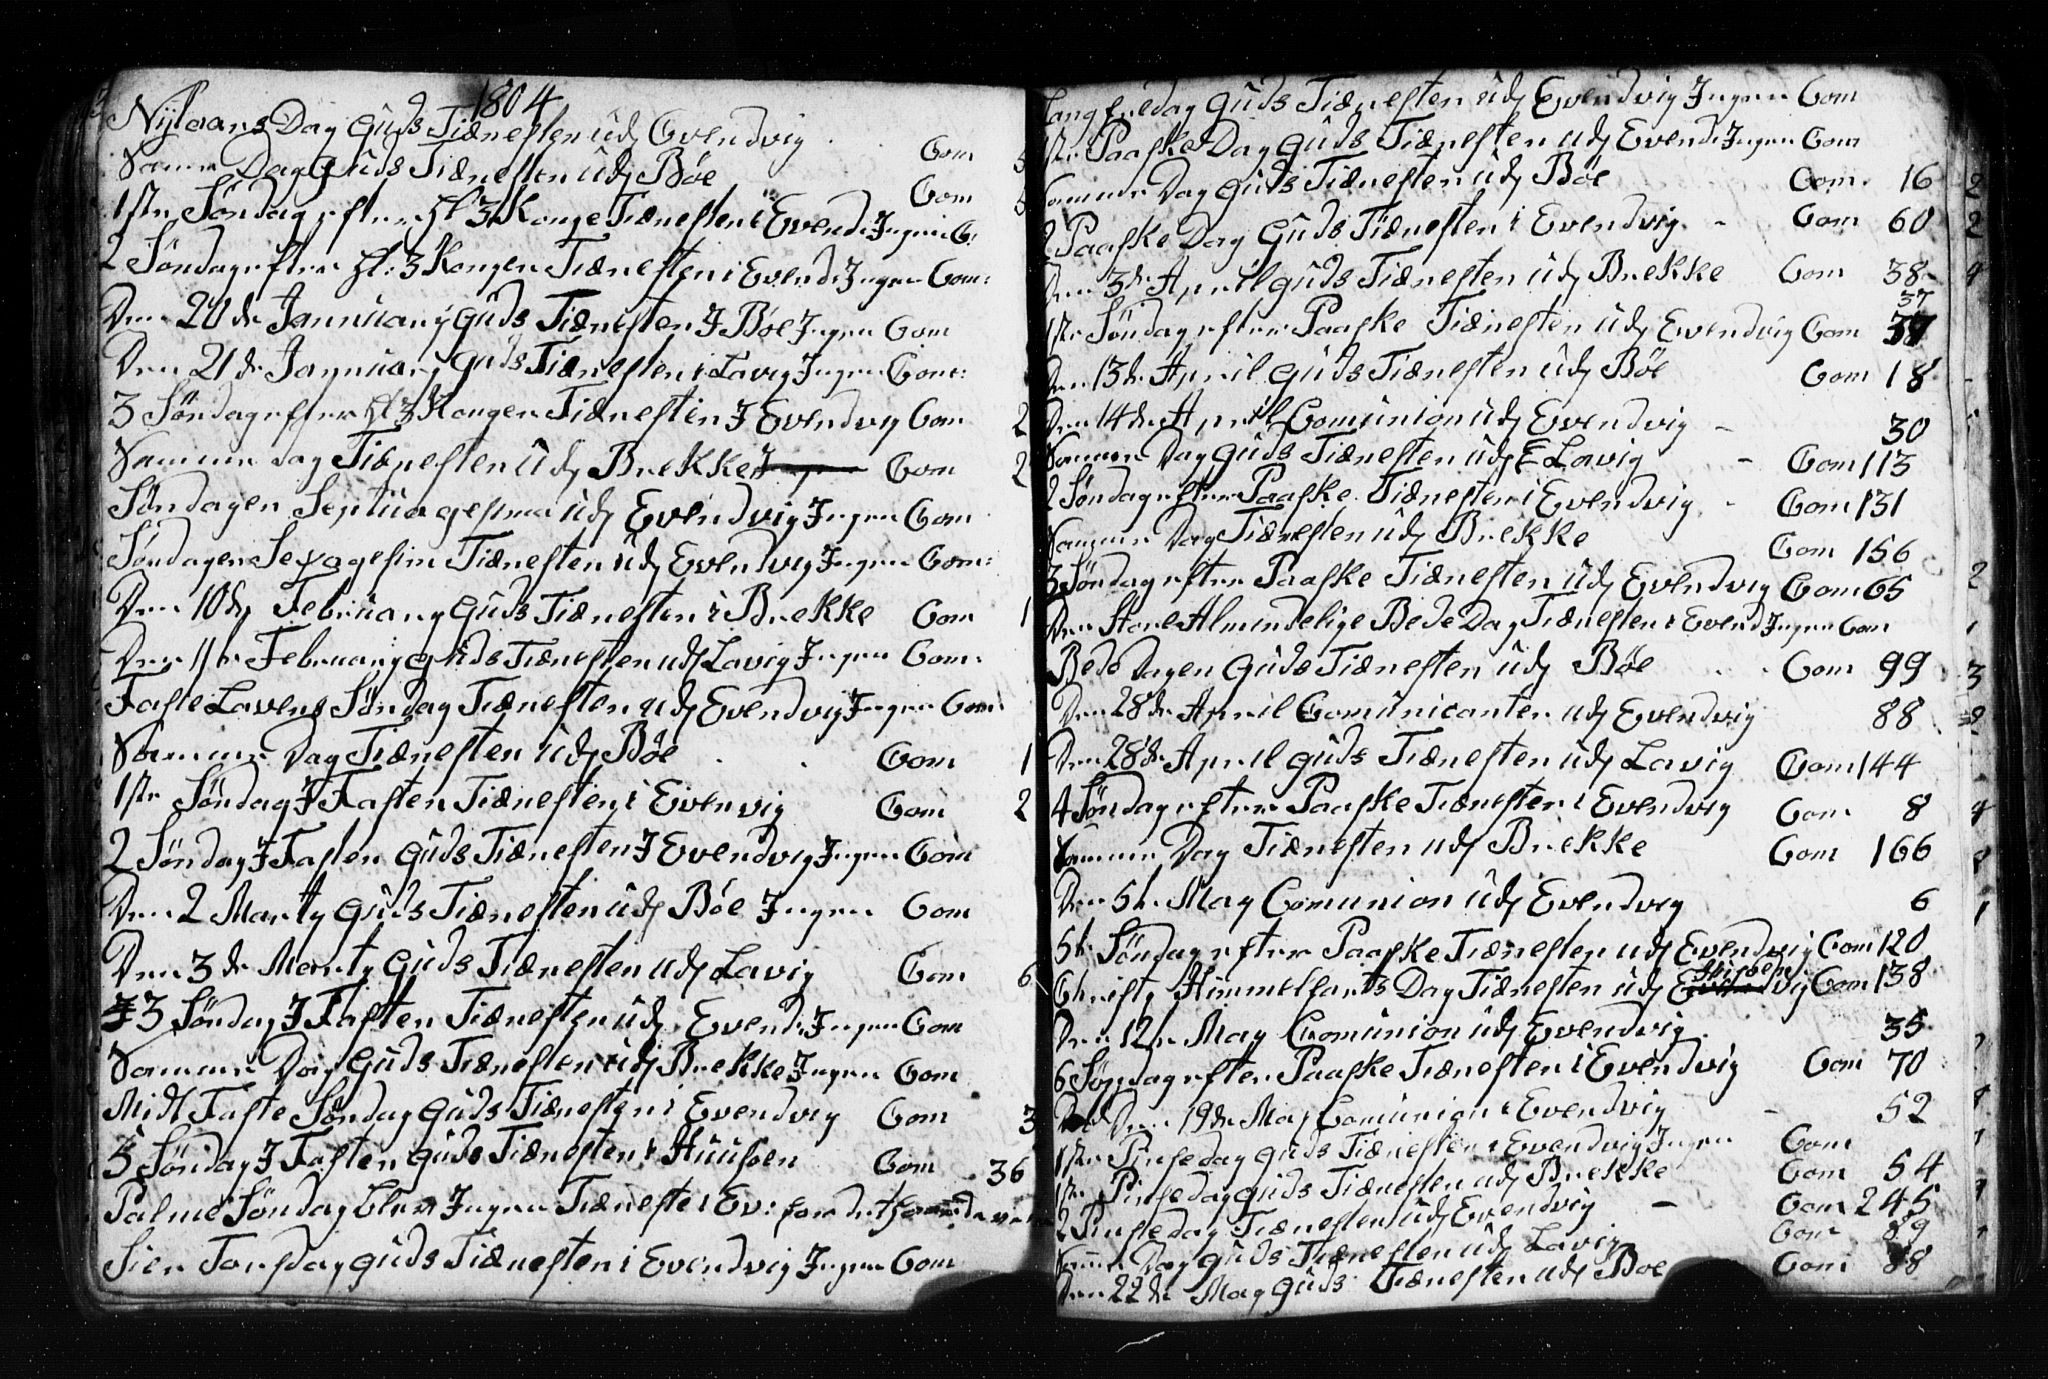 1804
Nÿtaars Dag Guds Tiænesten udj Evendvig Com
Samme Dag Guds Tiænesten udj Bøe Com 5
1ste Søndag efter Hl 3 Konge Tiænesten i Evend: Ingen C:
2 Søndag efter Hl: 3 Konger Tiænesten i Evend: Ingen Com:
Den 20de Januarij Guds Tiænesten I Bøe Ingen Com
Den 21de Januarij Guds Tiænesten i Lavig Ingen Com:
3 Søndag efter Hl 3 Konger Tiænesten I Evendvig Com 2
Samme dag Tiænesten Udj Brekke Com 2
Søndagen Septuagesima udj Evendvig Ingen Com
Søndagen Sexagesim Tiænesten udj Evendvig Ingen Com:
Den 10de Februarij Guds Tiænesten i Brekke Com 1
Den 11te Februarij Guds Tiænesten udj Lavig Ingen Com:
Faste Lavens Søndag Tiænesten udj Evendvig Ingen Com:
Samme Dag Tiænesten Udj Bøe Com 1
1ste Søndag I Fasten Tiænesten i Eivenvig Com 2
2 Søndag I Fasten Guds Tiænesten I Evendvig Ingen Com
Den 2 Marty Guds Tiænesten udj Bøe Ingen Com
Den 3de Marty Guds Tiænesten udj Lavig Com 6
3 Søndag I Fasten Tiænesten udj Evend: Ingen Com
Samme Dag Guds Tiænesten udj Brekke Ingen Com
Midt Faste Søndag Guds Tiænesten i Evendvig Com 3
5 Søndag I Fasten Guds Tiænesten i Huusøen Com 36
Palme Søndag blev Ingen Tiæneste i Ev:
Sier Torsdag Guds Tiænesten i Evendvig Ingen Com
Lang Fredag Guds Tiænesten udj Evendvig Ingen Com
1ste Paaske Dag Guds Tiænesten udj Evend: Ingen Com
Samme Dag Guds Tiænesten udj Bøe Com 16
2 Paaske Dag Guds Tiænesten i Evendvig - Com 60
Den 3de April Guds Tiænesten Udj Brekke Com 38
1ste Søndag efter Paaske Tiænesten udj Evendvig Com 37
Den 13de April Guds Tiænesten udj Bøe Com 18
Den 14de April Comunion udj Evendvig - 30
Samme Dag Guds Tiænesten udj Lavig - Com 113
2 Søndag efter Paaske Tiænesten i Evendvig - Com 131
Samme Dag Tiænesten udj Brekke Com 156
3 Søndag efter Paaske Tiænesten udj Evendvig Com 65
Den Store Almindelige Bede Dag Tiænesten i Evend Ingen Com
Bede Dagen Guds Tiænesten udj Bøe Com 99
Den 28de April Comunicanter udj Evendvig 88
Den 28de April Guds Tiænesten udj Lavig Com 144
4 Søndag efter Paaske Tiænesten i Evendvig Com 8
Samme Dag Tiænesten udj Brekke Com 166
Den 5te May Comunion udj Evendvig 6
5te Søndag efter Paaske Tiænesten udj Evendvig Com 120
Christy Himmelfarts Dag Tiænesten udj Huisøen Com 138
Den 12te May Comunion udj Evendvig 35
6 Søndag efter Paaske Tiænesten i Evendvig Com 70
Den 19de May Comunion i Evendvig - 52
1ste Pinsedag Guds Tiænesten i Evendvig Ingen Com
1ste Pinsedag Guds Tiænesten udj Brekke Com 54
2 Pinsedag Tiænesten udj Evendvig - Com 245
Samme Dag Guds Tiænesten udj Lavig Com 89
Den 22de May Guds Tiænesten udj Boe Com 88